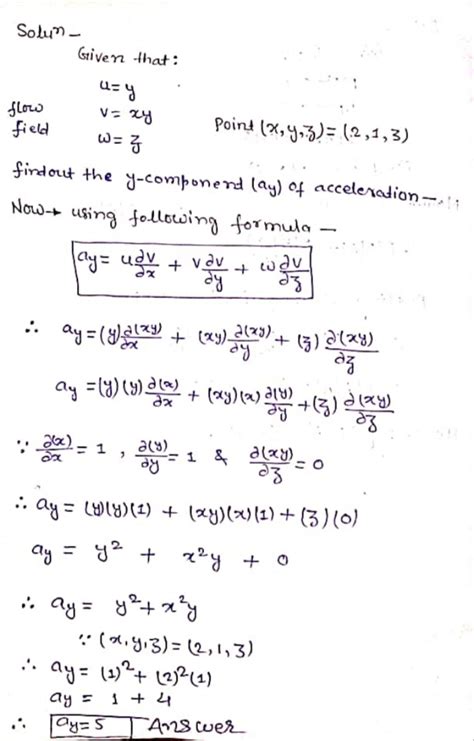 Solun -
Given that:
u = y
flow field
v = xy
w = z
Point (x,y,z) = (2,1,3)
findout the y-component (ay) of acceleration -
Now → using following formula -
ay = u ∂v/∂x + v ∂v/∂y + w ∂v/∂z
∴ ay = (y) ∂(xy)/∂x + (xy) ∂(xy)/∂y + (z) ∂(xy)/∂z
ay = (y)(y) ∂(x)/∂x + (xy)(x) ∂(y)/∂y + (z) ∂(xy)/∂z
∵ ∂(x)/∂x = 1 , ∂(y)/∂y = 1 & ∂(xy)/∂z = 0
∴ ay = (y)(y)(1) + (xy)(x)(1) + (z)(0)
ay = y² + x²y + 0
∴ ay = y² + x²y
∵ (x,y,z) = (2,1,3)
∴ ay = (1)² + (2)²(1)
ay = 1 + 4
∴ ay = 5 Answer